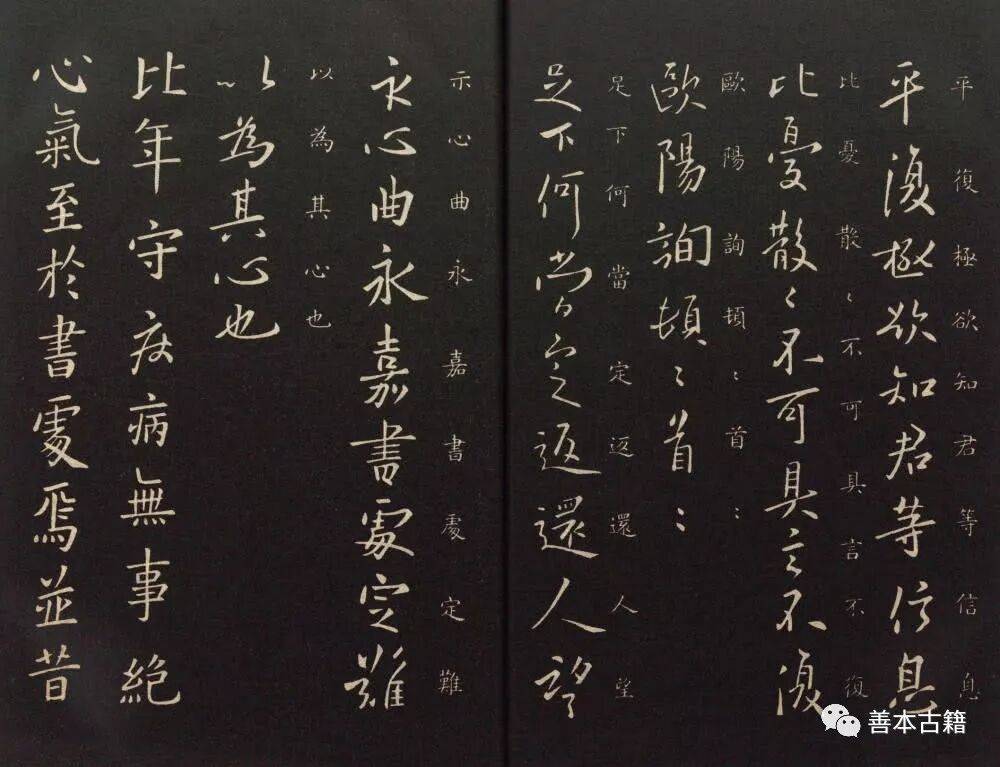 平復極欲知君等信息
平復極欲知君等信息
比憂散〻不可具言不復
比憂散〻不可具言不復
歐陽詢頓〻首〻
歐陽詢頓〻首〻
足下何當定返還人望
足下何當定返還人望
示心曲永嘉書處定難
示心曲永嘉書處定難
以為其心也
以為其心也
比年守疾病無事絕
心氣至於書處焉並昔
善本古籍